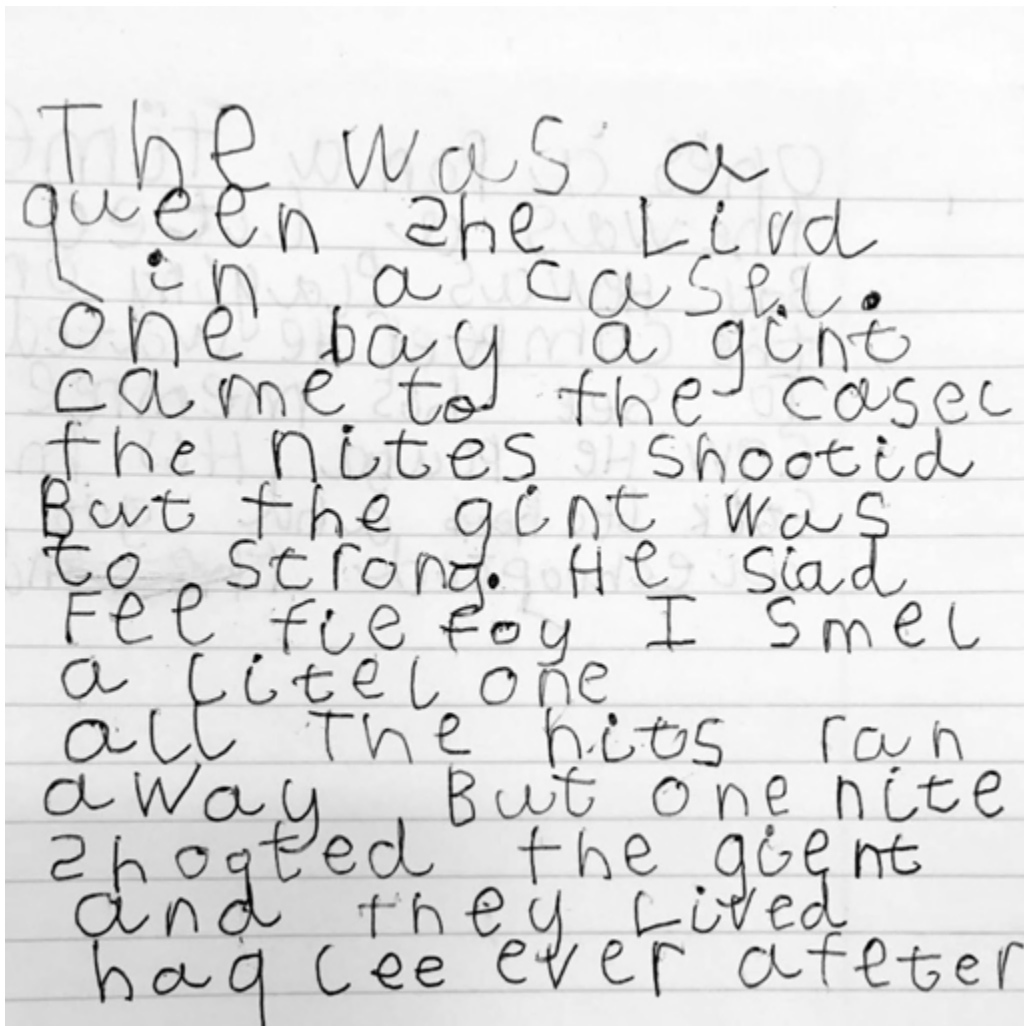 The was a
queen She Livd
in a casel.
one bay a gint
came to the casel
the nites shootid
But the gint was
to strong. He siad
Fee fie foy I smel
a litel one
all The nits ran
away But one nite
shooted the gient
and they Lived
haq lee ever afeter